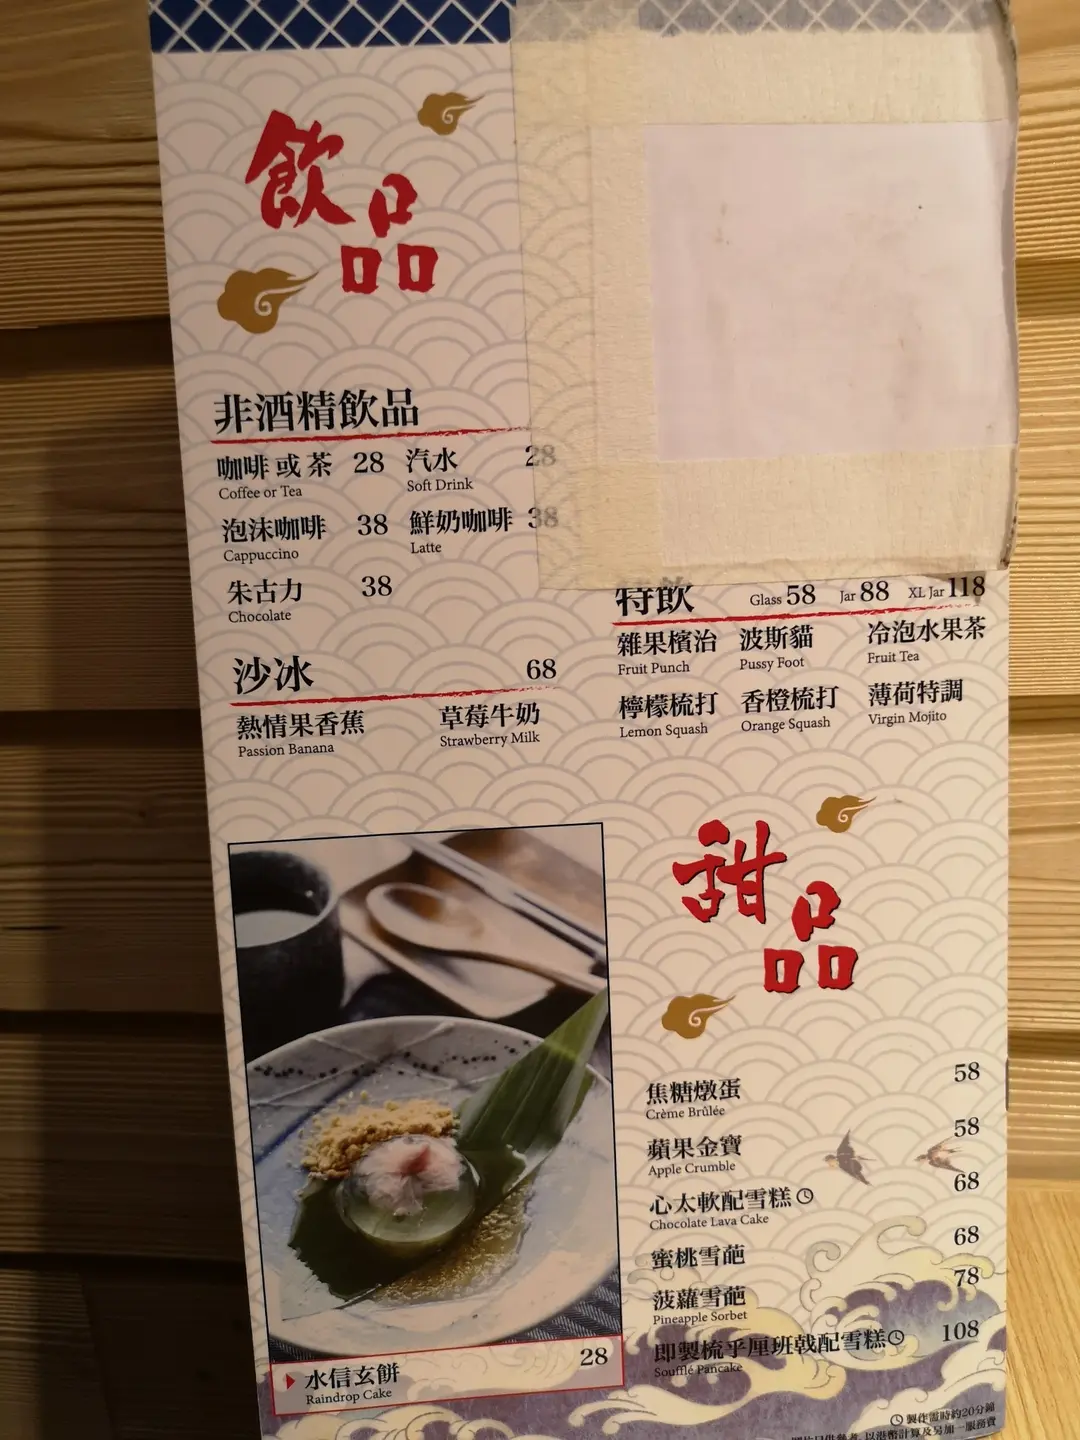 飲品
非酒精飲品
咖啡或茶 28 汽水 28
Coffee or Tea Soft Drink
泡沫咖啡 38 鮮奶咖啡 38
Cappuccino Latte
朱古力 38
Chocolate
沙冰 68
熱情果香蕉 草莓牛奶
Passion Banana Strawberry Milk
特飲 Glass 58 Jar 88 XL Jar 118
雜果檳治 波斯貓 冷泡水果茶
Fruit Punch Pussy Foot Fruit Tea
檸檬梳打 香橙梳打 薄荷特調
Lemon Squash Orange Squash Virgin Mojito
甜品
焦糖燉蛋 58
Crème Brûlée
蘋果金寶 58
Apple Crumble
心太軟配雪糕 68
Chocolate Lava Cake
蜜桃雪葩 68
菠蘿雪葩 78
Pineapple Sorbet
即製梳乎厘班戟配雪糕 108
Soufflé Pancake
水信玄餅 28
Raindrop Cake
製作需時約20分鐘
以港幣計算及另加一服務費